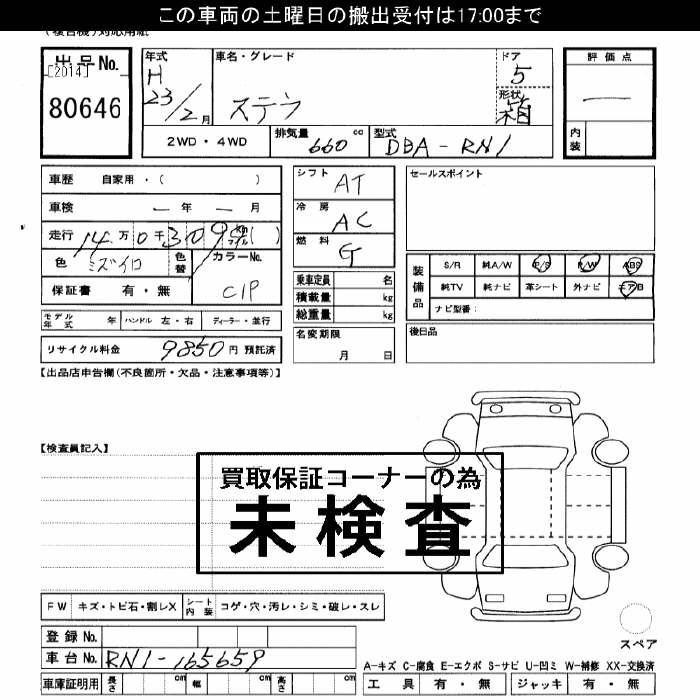 この車両の土曜日の搬出受付は17:00まで
出品No.
[2014]
80646
年式
H
23/2月
車名・グレード
ステラ
ドア
5
形状
箱
評価点
内装
2WD・4WD
排気量 660 cc
型式 DBA-RN1
車歴 自家用・( )
車検 ー年 ー月
走行 14万0千309 km マイル ( )
色 ミズイロ
色替
カラーNo.
C1P
保証書 有・無
シフト AT
冷房 AC
燃料 G
乗車定員 名
積載量 kg
総重量 kg
名変期限
月 日
セールスポイント
装備品
S/R 純A/W P/S P/W ABS
純TV 純ナビ 革シート 外ナビ エアB
ナビ型番:
後日品
モデル年式 年 ハンドル 左・右 ディーラー・並行
リサイクル料金 9850 円 預託済
【出品店申告欄(不良箇所・欠品・注意事項等)】
【検査員記入】
買取保証コーナーの為
未検査
FW キズ・トビ石・割レX
シート内装 コゲ・穴・汚レ・シミ・破レ・スレ
登録No.
車台No. RN1-165659
車庫証明用 長さ cm 幅 cm 高さ cm
スペア
A-キズ C-腐食 E-エクボ S-サビ U-凹ミ W-補修 XX-交換済
工具 有・無 ジャッキ 有・無